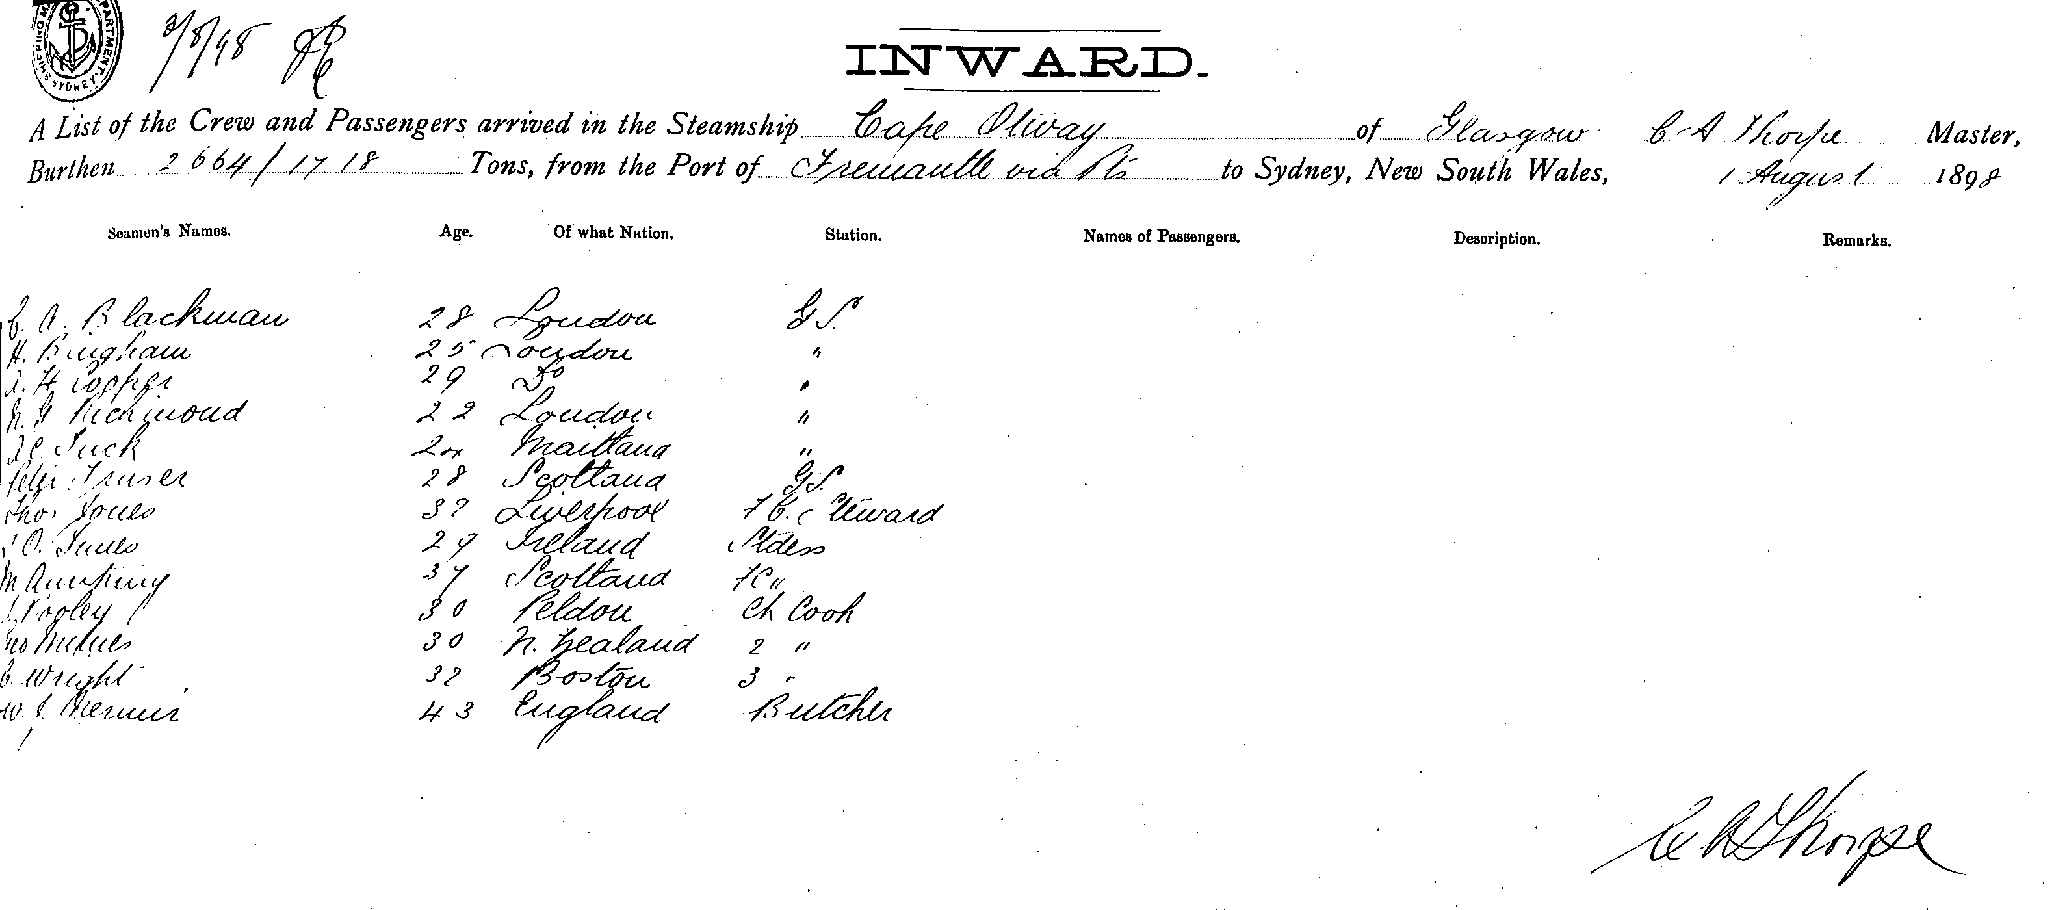 3/8/98
INWARD.
A List of the Crew and Passengers arrived in the Steamship Cape Otway of Glasgow C A Thorpe Master,
Burthen 2664/1718 Tons, from the Port of Fremantle via Pts to Sydney, New South Wales, 1 August 1898
Seamen's Names. Age. Of what Nation. Station. Names of Passengers. Description. Remarks.
C. A. Blackman 28 London G S.
H. Bingham 25 London "
H 29 Do "
Richmond 22 London "
Tuck Maitland "
Peter Fraser 28 Scotland G S.
Thos Jones 32 Liverpool Steward
29 Ireland Stdess
M 37 Scotland "
Pooley 30 Peldon Ch Cook
Geo 30 N. Zealand 2 "
C. Wright 32 Boston 3 "
W. J. 43 England Butcher
C A Thorpe